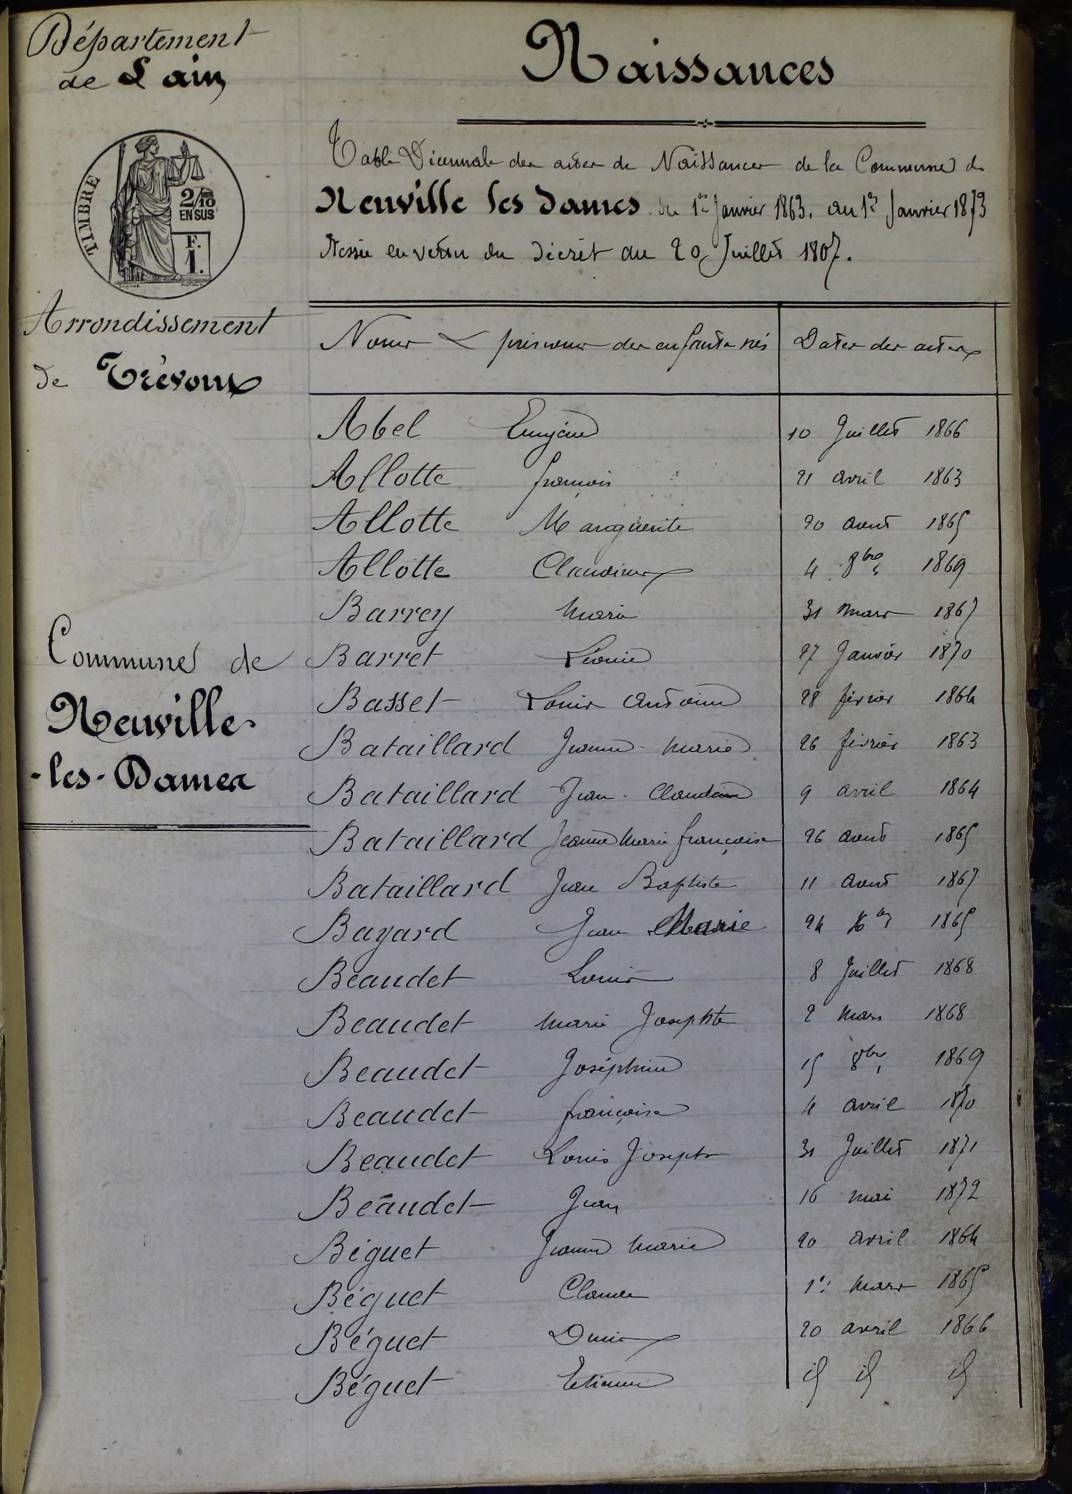 Département
de L'ain
TIMBRE
2/10
EN SUS
F.
1.
Arrondissement
de Trévoux
Commune de
Neuville-
-les-Dames
Naissances
Table Décennale des actes de Naissances de la Commune de
Neuville les Dames du 1er Janvier 1863. au 1er Janvier 1873
Dressée en vertu du décrêt du 20 Juillet 1807.
Noms & prénoms des enfants nés Dates des actes
Abel Eugène 10 Juillet 1866
Allotte françois 21 avril 1863
Allotte Marguerite 20 aout 1865
Allotte Claudine 4 8bre 1869
Barrey Marie 31 mars 1867
Barret Léonie 27 Janvier 1870
Basset Louis Antoine 28 février 1864
Bataillard Jeanne-Marie 26 février 1863
Bataillard Jean-Claude 9 avril 1864
Bataillard Jeanne Marie françoise 26 aout 1865
Bataillard Jean Baptiste 11 aout 1867
Bayard Jean Marie 24 Xbre 1865
Beaudet Louis 8 Juillet 1868
Beaudet Marie Josephte 2 mars 1868
Beaudet Joséphine 15 8bre 1869
Beaudet françoise 4 avril 1870
Beaudet Louis Joseph 31 Juillet 1871
Beaudet Jean 16 mai 1872
Béguet Jeanne Marie 20 avril 1864
Béguet Claude 1er mars 1865
Béguet Denis 20 avril 1866
Béguet Etienne id id id